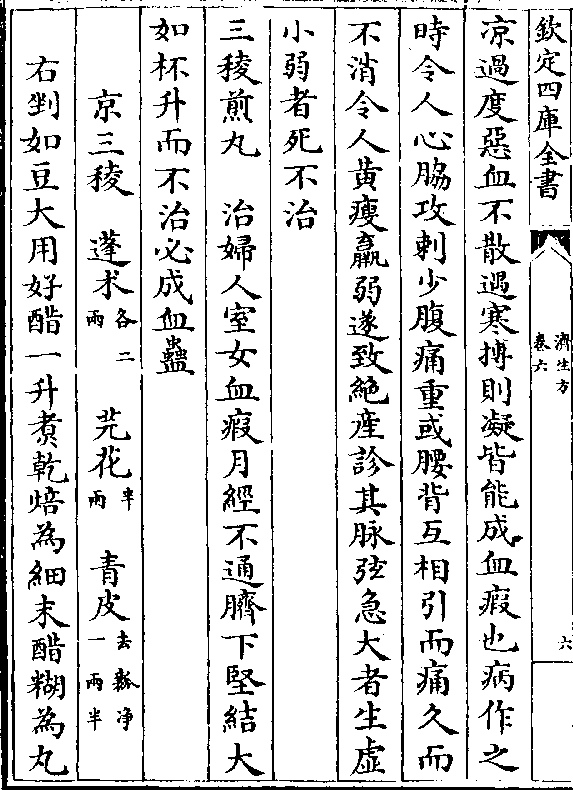 欽定四庫全書
濟生方
卷六
六
凉過度惡血不散遇寒搏則凝皆能成血瘕也病作之
時令人心脇攻刺少腹痛重或腰背互相引而痛久而
不消令人黄瘦羸弱遂致絶産診其脉弦急大者生虚
小弱者死不治
三稜煎丸　治婦人室女血瘕月經不通臍下堅結大
如杯升而不治必成血蠱
京三稜　蓬术各二兩　芫花半兩　青皮去瓤净一兩半
右剉如豆大用好醋一升煮乾焙為細末醋糊為丸